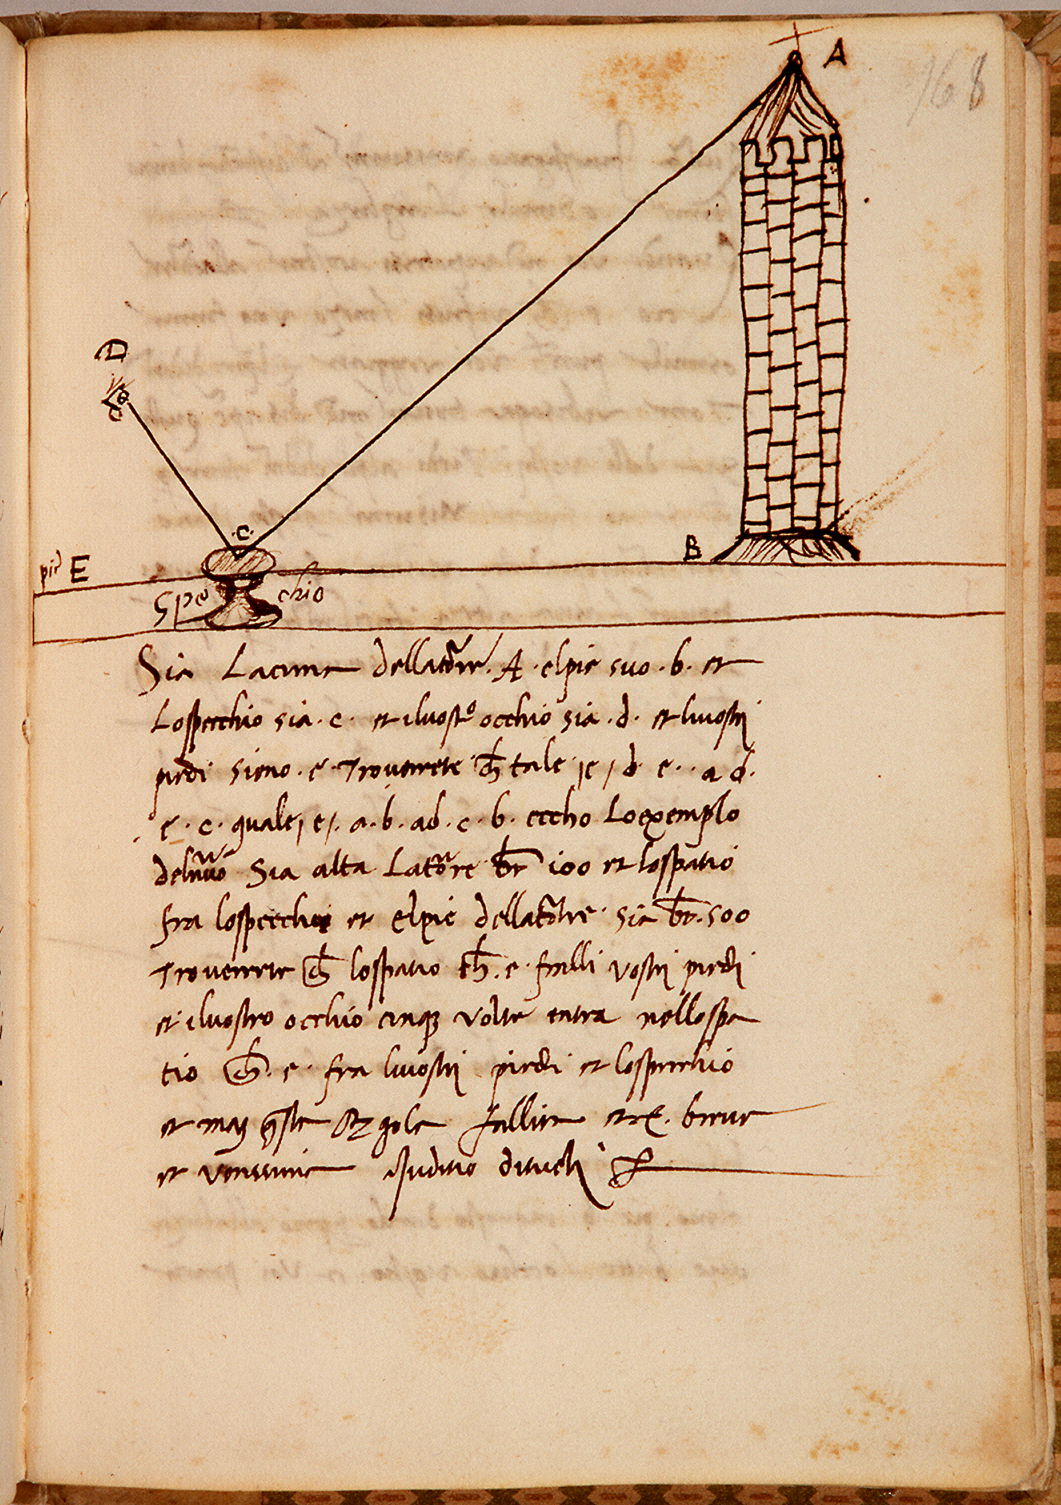 168
A
D
c
B
piè E
Spe chio
Sia Lacima dellatorre. A. elpie suo. b. et
Lospecchio sia. c. et iluostro occhio sia. d. et livostri
piedi sieno. e. Troverrete ch tale, e, d e.. a d.
e. c. quale, e,. a. b. ad. c. b. eccho Loexemplo
del Sia alta Latorre br 100 et lospatio
fra lospecchio et elpie dellatorre sia br. 500
Troverrete ch lospatio ch. e. fralli vostri piedi
et iluostro occhio cinque volte entra nellospa
tio ch. e. fra livostri piedi et lospecchio
et mai questa Regola fallira etc. breve
et verissima